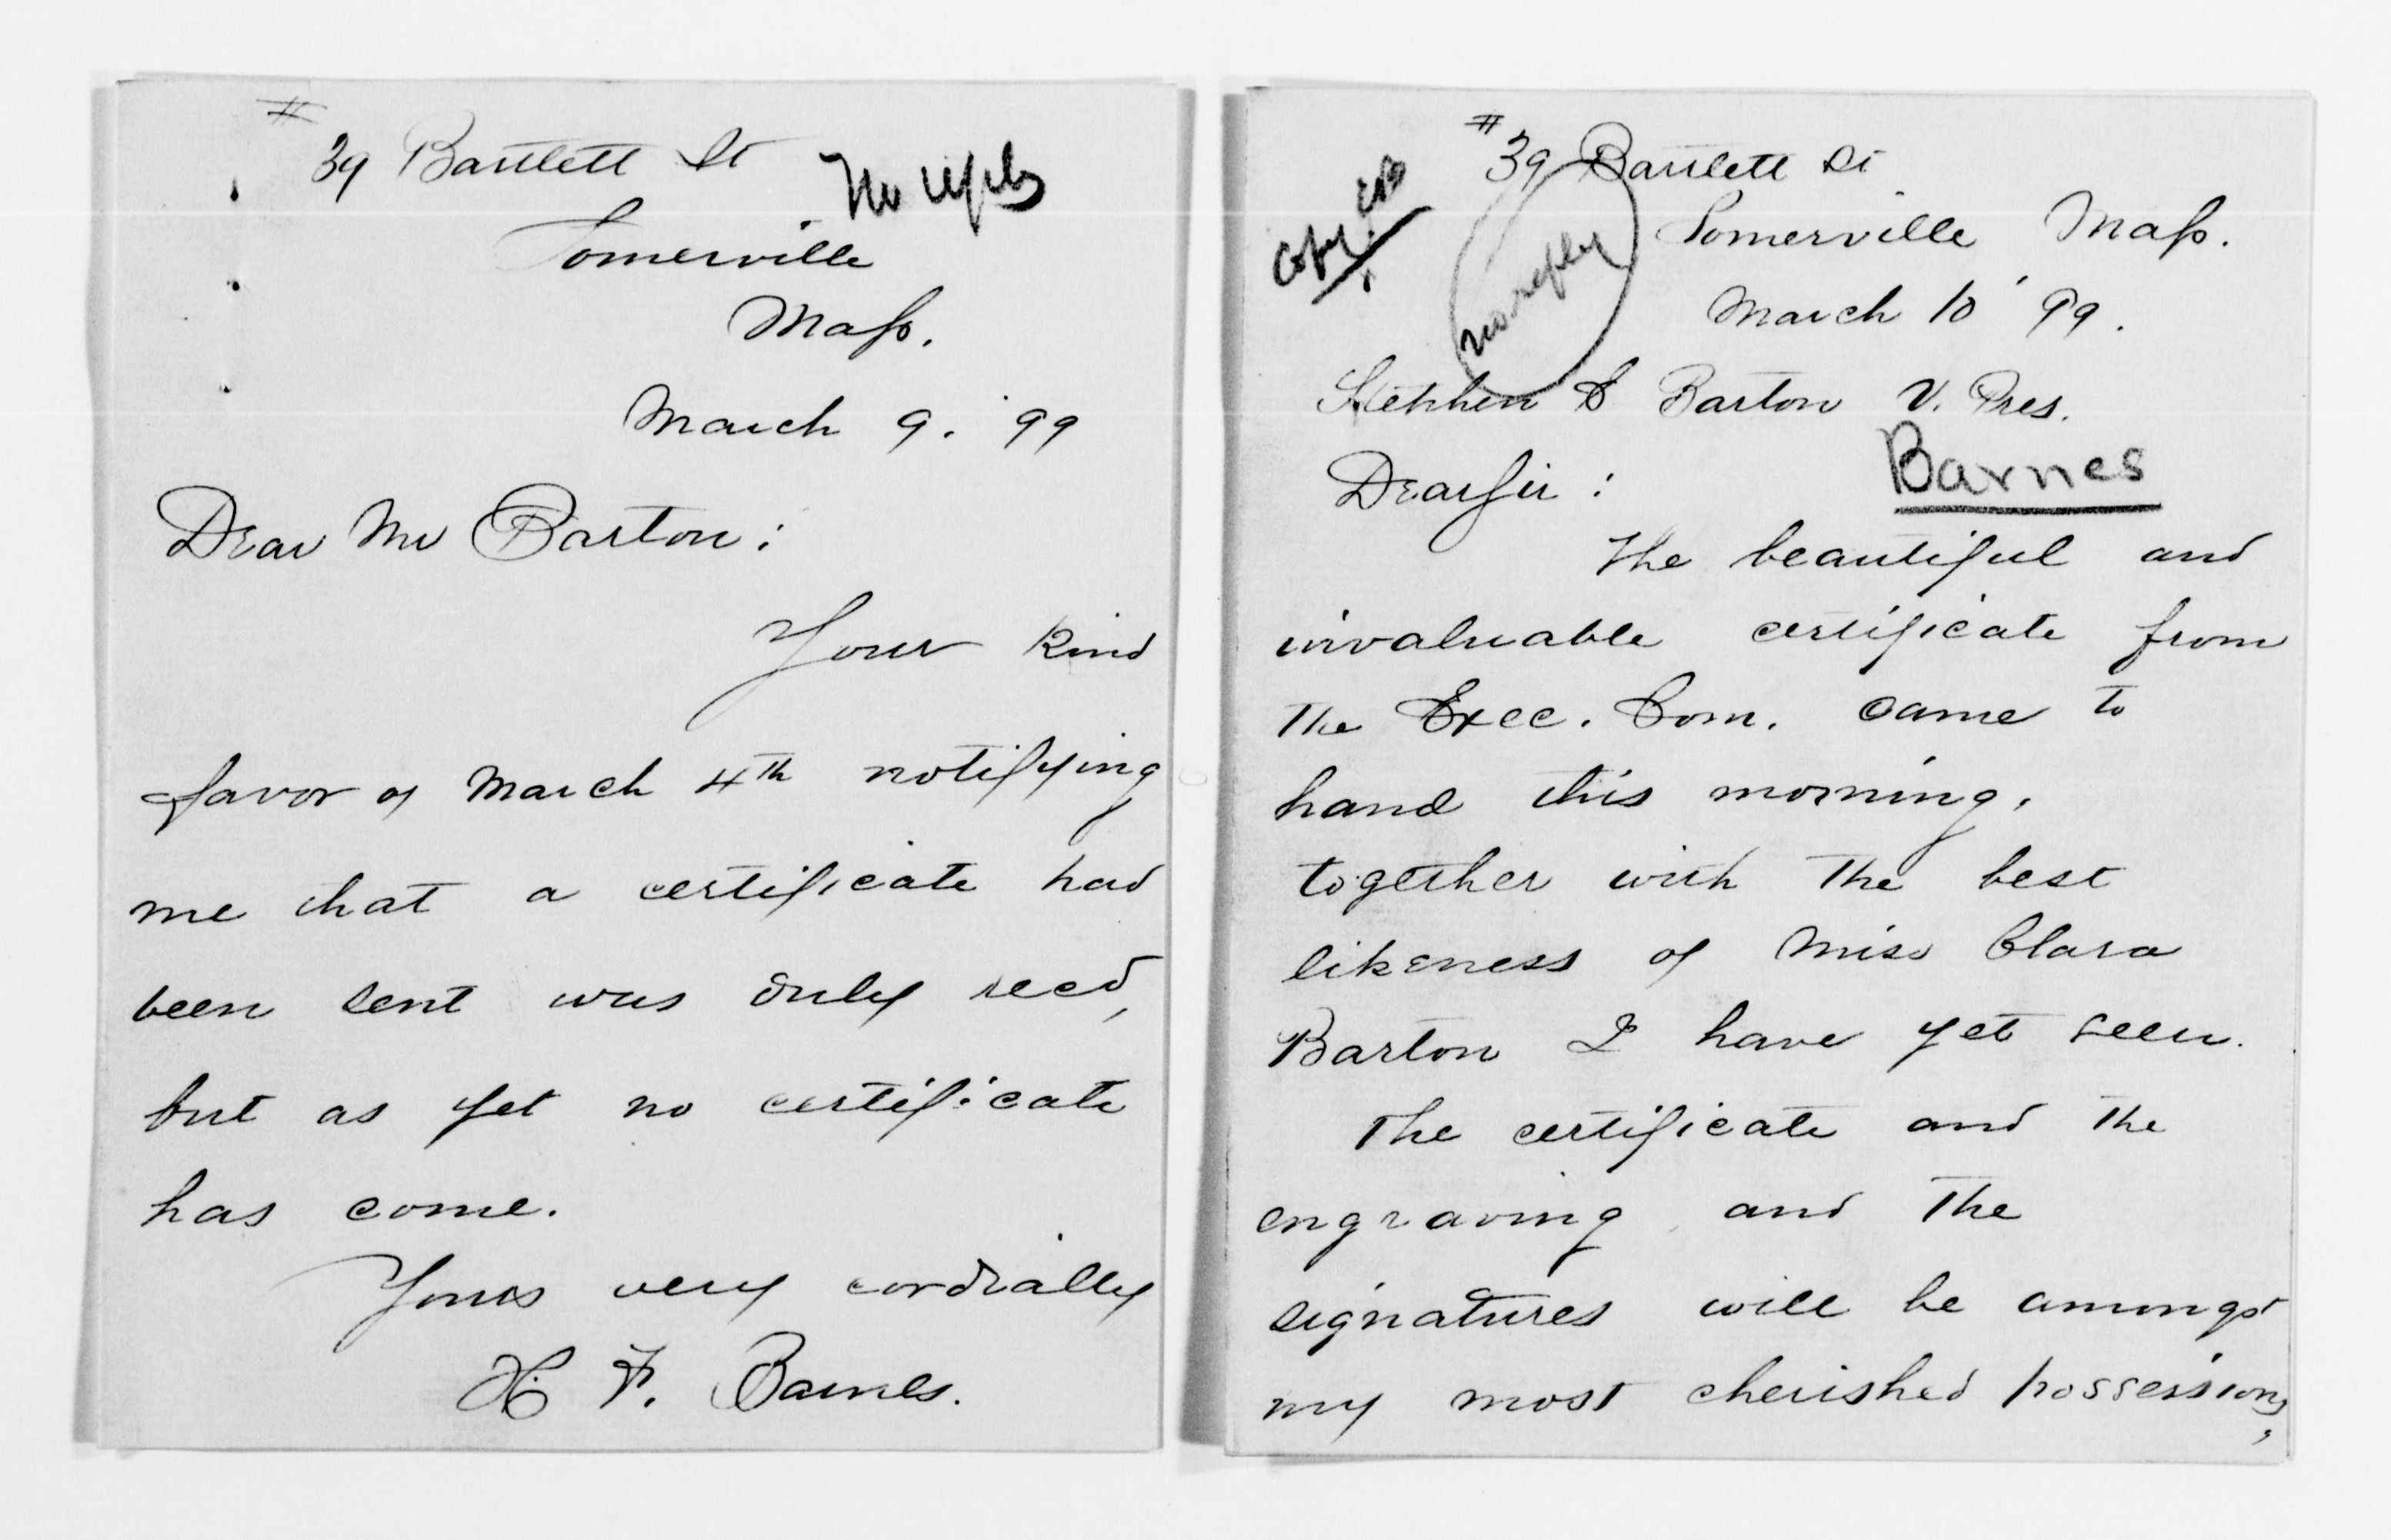 # 39 Bartlett St
No reply
Somerville
Mass.
March 9. '99
Dear Mr Barton:
Your kind
favor of March 4th notifying
me that a certificate had
been sent was duly recd,
but as yet no certificate
has come.
Yours very cordially
H. F. Barnes.
# 39 Bartlett St
Copy.
no reply
Somerville Mass.
March 10 '99.
Stephen E Barton V. Pres.
Barnes
Dear Sir:
The beautiful and
invaluable certificate from
the Exec. Com. came to
hand this morning,
together with the best
likeness of Miss Clara
Barton I have yet seen.
The certificate and the
engraving and the
signatures will be amongst
my most cherished possessions,